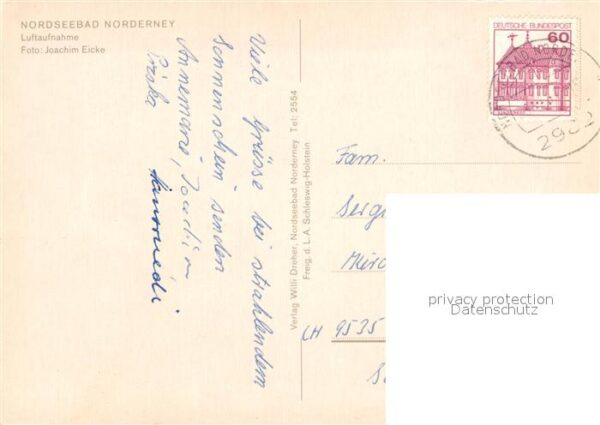 NORDSEEBAD NORDERNEY
Luftaufnahme
Foto: Joachim Eicke
Viele Grüsse bei strahlendem
Sonnenschein senden
Annemarie, Joachim
Verlag Willi Dreher, Nordseebad Norderney Tel: 2554
Freig. d. L. A. Schleswig-Holstein
DEUTSCHE BUNDESPOST
60
BAD NORD
Fam.
CH 9535
privacy protection
Datenschutz